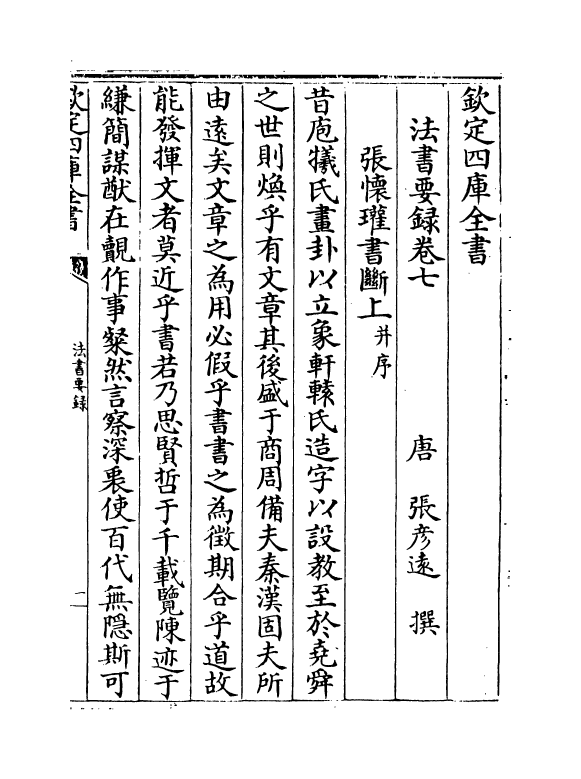 欽定四庫全書
法書要録卷七　唐　張彥遠　撰
張懷瓘書斷上并序
昔庖犧氏畫卦以立象軒轅氏造字以設教至於堯舜
之世則煥乎有文章其後盛于商周備夫秦漢固夫所
由遠矣文章之為用必假乎書書之為徵期合乎道故
能發揮文者莫近乎書若乃思賢哲于千載覽陳迹于
縑簡謀猷在覿作事粲然言察深衷使百代無隠斯可
欽定四庫全書
法書要録
二